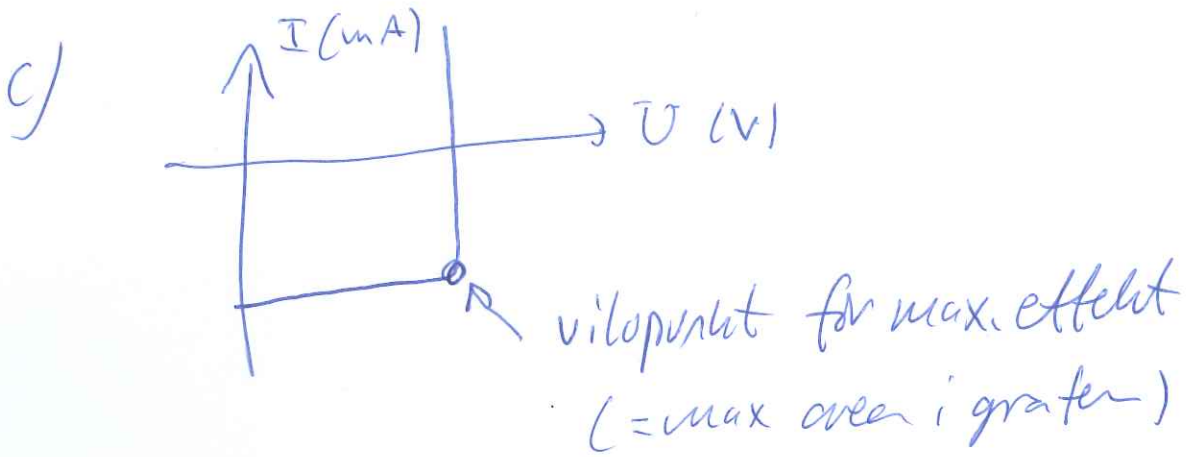 c)
I (mA)
U (V)
vilopunkt för max. effekt
(= max arean i grafen)